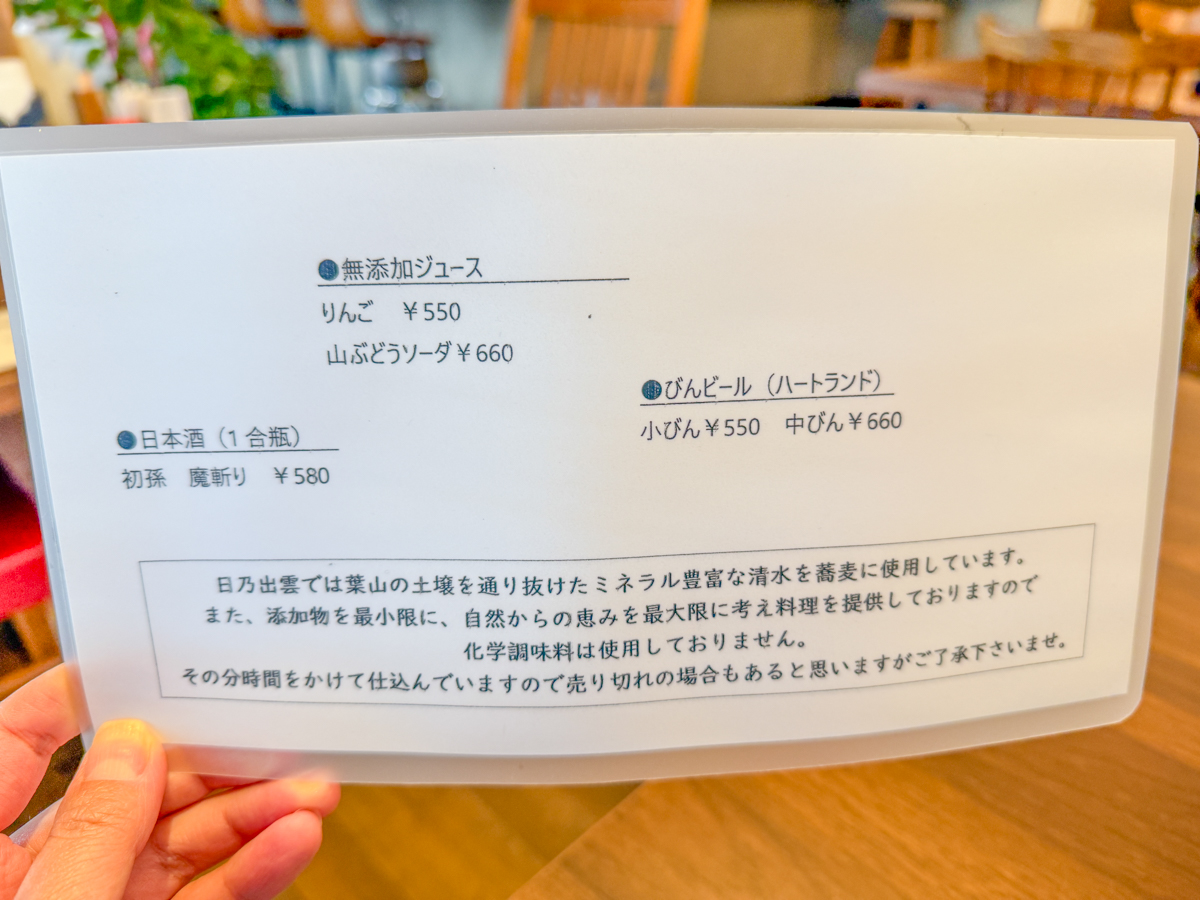 ●無添加ジュース
りんご ￥550
山ぶどうソーダ￥660
●びんビール（ハートランド）
小びん￥550 中びん￥660
●日本酒（1合瓶）
初孫 魔斬り ￥580
日乃出雲では葉山の土壌を通り抜けたミネラル豊富な清水を蕎麦に使用しています。
また、添加物を最小限に、自然からの恵みを最大限に考え料理を提供しておりますので
化学調味料は使用しておりません。
その分時間をかけて仕込んでいますので売り切れの場合もあると思いますがご了承下さいませ。